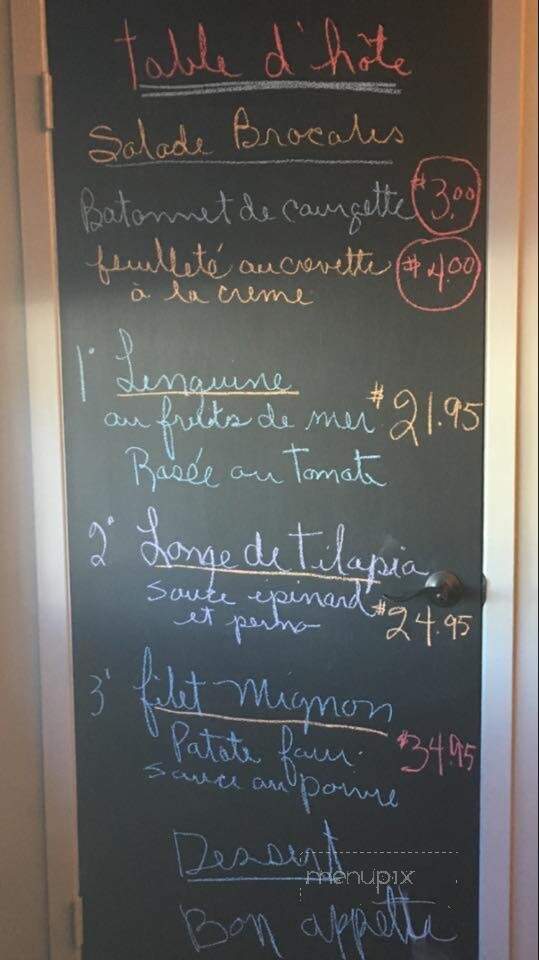 Table d'hôte
Salade Brocalis
Batonnet de caurgette $3.00
feuilleté au crevette $4.00
à la creme
1° Linguine
au fruits de mer $21.95
Rasée au tomate
2° Longe de tilapia
sauce epinard
et perno $24.95
3° filet mignon
Patate four
sauce au poivre $34.95
Dessert
menupix
Bon appetite